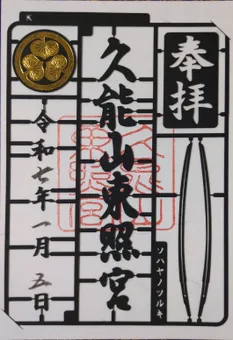 奉拝
ソハヤノツルキ
久能山東照宮
令和七年一月五日
K